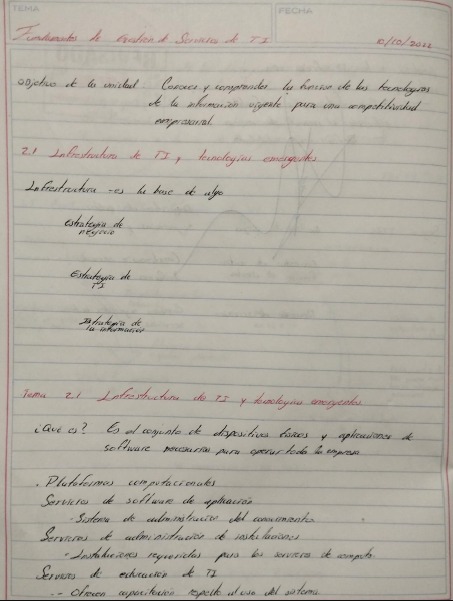 TEMA
FECHA
Fundamentos de Gestión de Servicios de TI
10/10/2022
Objetivo de la unidad: Conocer y comprender la función de las tecnologías
de la información vigente para una competitividad
empresarial.
2.1 Infraestructura de TI y tecnologías emergentes
Infraestructura - es la base de algo
estrategia de
negocio
Estrategia de
TI
Estrategia de
la información
Tema 2.1 Infraestructura de TI y tecnologías emergentes
¿Qué es? Es el conjunto de dispositivos físicos y aplicaciones de
software necesarias para operar toda la empresa
. Plataformas computacionales
Servicios de software de aplicación
- Sistema de administración del conocimiento
Servicios de administración de instalaciones
- Instalaciones requeridas para los servicios de computo
Servicios de educación de TI
- Ofrecen capacitación respecto al uso del sistema